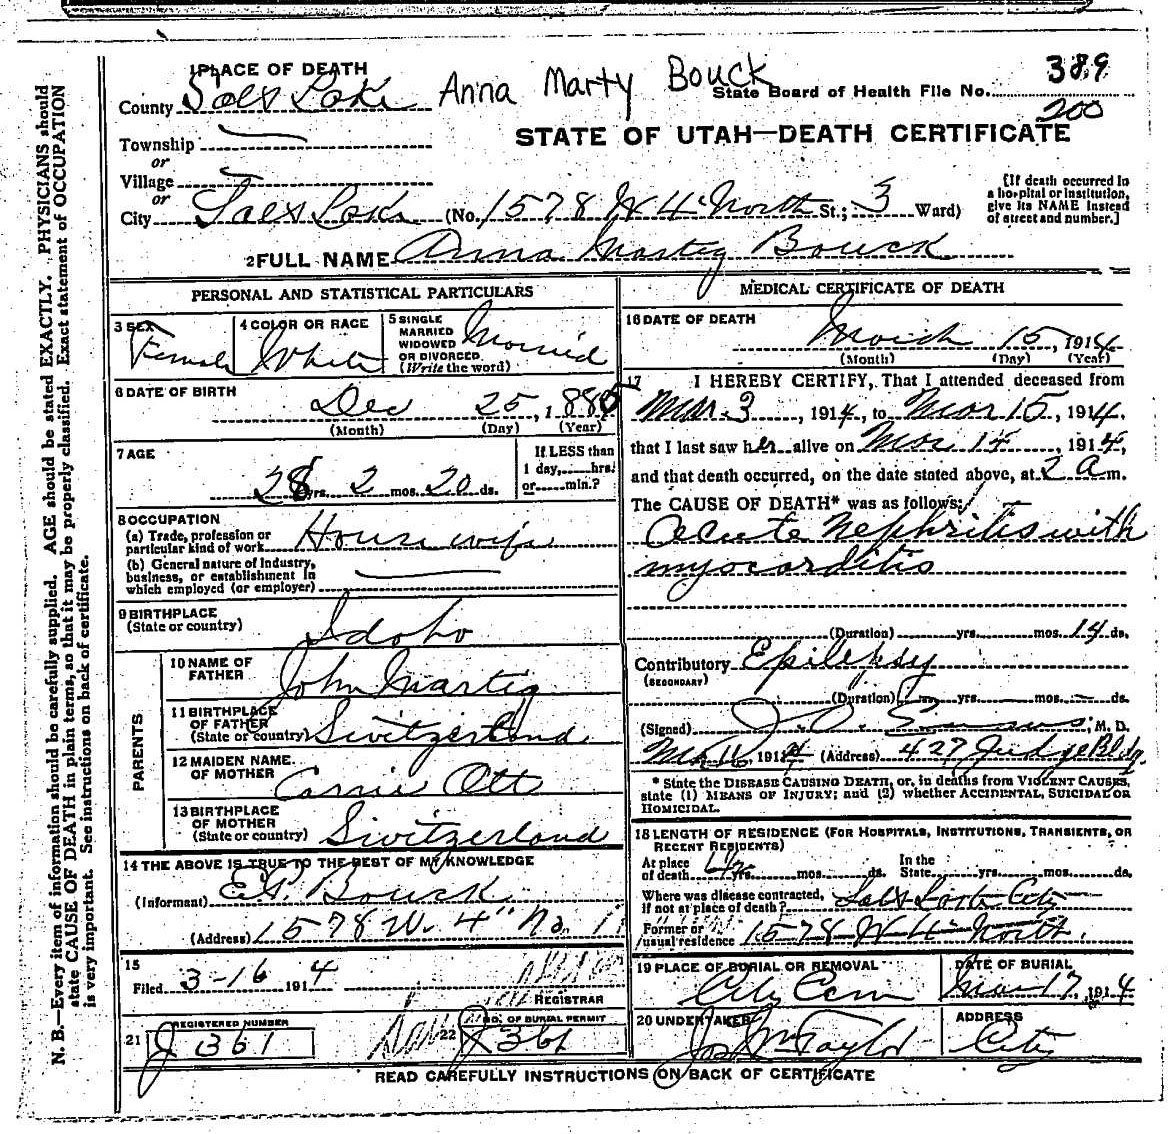 1 PLACE OF DEATH
Anna Marty Bouck
389
County Salt Lake
State Board of Health File No. 200
Township
STATE OF UTAH—DEATH CERTIFICATE
or
Village
or
City Salt Lake (No. 1578 W 4" North St.; 3 Ward)
[If death occurred in a hospital or institution, give its NAME instead of street and number.]
2 FULL NAME Anna Martey Bouck
PERSONAL AND STATISTICAL PARTICULARS
3 SEX Female
4 COLOR OR RACE White
5 SINGLE MARRIED WIDOWED OR DIVORCED. (Write the word) Married
6 DATE OF BIRTH
Dec 25, 1885
(Month) (Day) (Year)
7 AGE
28 yrs. 2 mos. 20 ds.
If LESS than 1 day,......hrs. or......min.?
8 OCCUPATION
(a) Trade, profession or particular kind of work Housewife
(b) General nature of Industry, business, or establishment in which employed (or employer)
9 BIRTHPLACE
(State or country) Idaho
PARENTS
10 NAME OF FATHER John Martig
11 BIRTHPLACE OF FATHER (State or country) Switzerland
12 MAIDEN NAME OF MOTHER Carrie Ott
13 BIRTHPLACE OF MOTHER (State or country) Switzerland
14 THE ABOVE IS TRUE TO THE BEST OF MY KNOWLEDGE
(Informant) E.P. Bouck
(Address) 1578 W. 4" No.
15
Filed 3-16 1914
REGISTRAR
21 REGISTERED NUMBER J 361
22 NO. OF BURIAL PERMIT J 361
MEDICAL CERTIFICATE OF DEATH
16 DATE OF DEATH
March 15, 1914
(Month) (Day) (Year)
17 I HEREBY CERTIFY, That I attended deceased from
Mar 3, 1914, to Mar 15, 1914,
that I last saw her alive on Mar 14, 1914,
and that death occurred, on the date stated above, at 2 A m.
The CAUSE OF DEATH* was as follows:
Acute Nephritis with
myocarditis
(Duration) yrs. mos. 14 ds.
Contributory Epilepsy
(SECONDARY)
(Duration) yrs. mos. ds.
(Signed) J. O. M. D.
Mar 16, 1914 (Address) 427 Judge Bldg.
* State the DISEASE CAUSING DEATH, or, in deaths from VIOLENT CAUSES,
state (1) MEANS OF INJURY; and (2) whether ACCIDENTAL, SUICIDAL OR
HOMICIDAL.
18 LENGTH OF RESIDENCE (FOR HOSPITALS, INSTITUTIONS, TRANSIENTS, OR
RECENT RESIDENTS)
At place of death yrs. mos. ds. In the State yrs. mos. ds.
Where was disease contracted, if not at place of death? Salt Lake City
Former or usual residence 1578 W 4 North.
19 PLACE OF BURIAL OR REMOVAL City Cem
DATE OF BURIAL Mar 17, 1914
20 UNDERTAKER Jos Wm Taylor
ADDRESS City
READ CAREFULLY INSTRUCTIONS ON BACK OF CERTIFICATE
N. B.—Every item of information should be carefully supplied. AGE should be stated EXACTLY. PHYSICIANS should
state CAUSE OF DEATH in plain terms, so that it may be properly classified. Exact statement of OCCUPATION
is very important. See instructions on back of certificate.